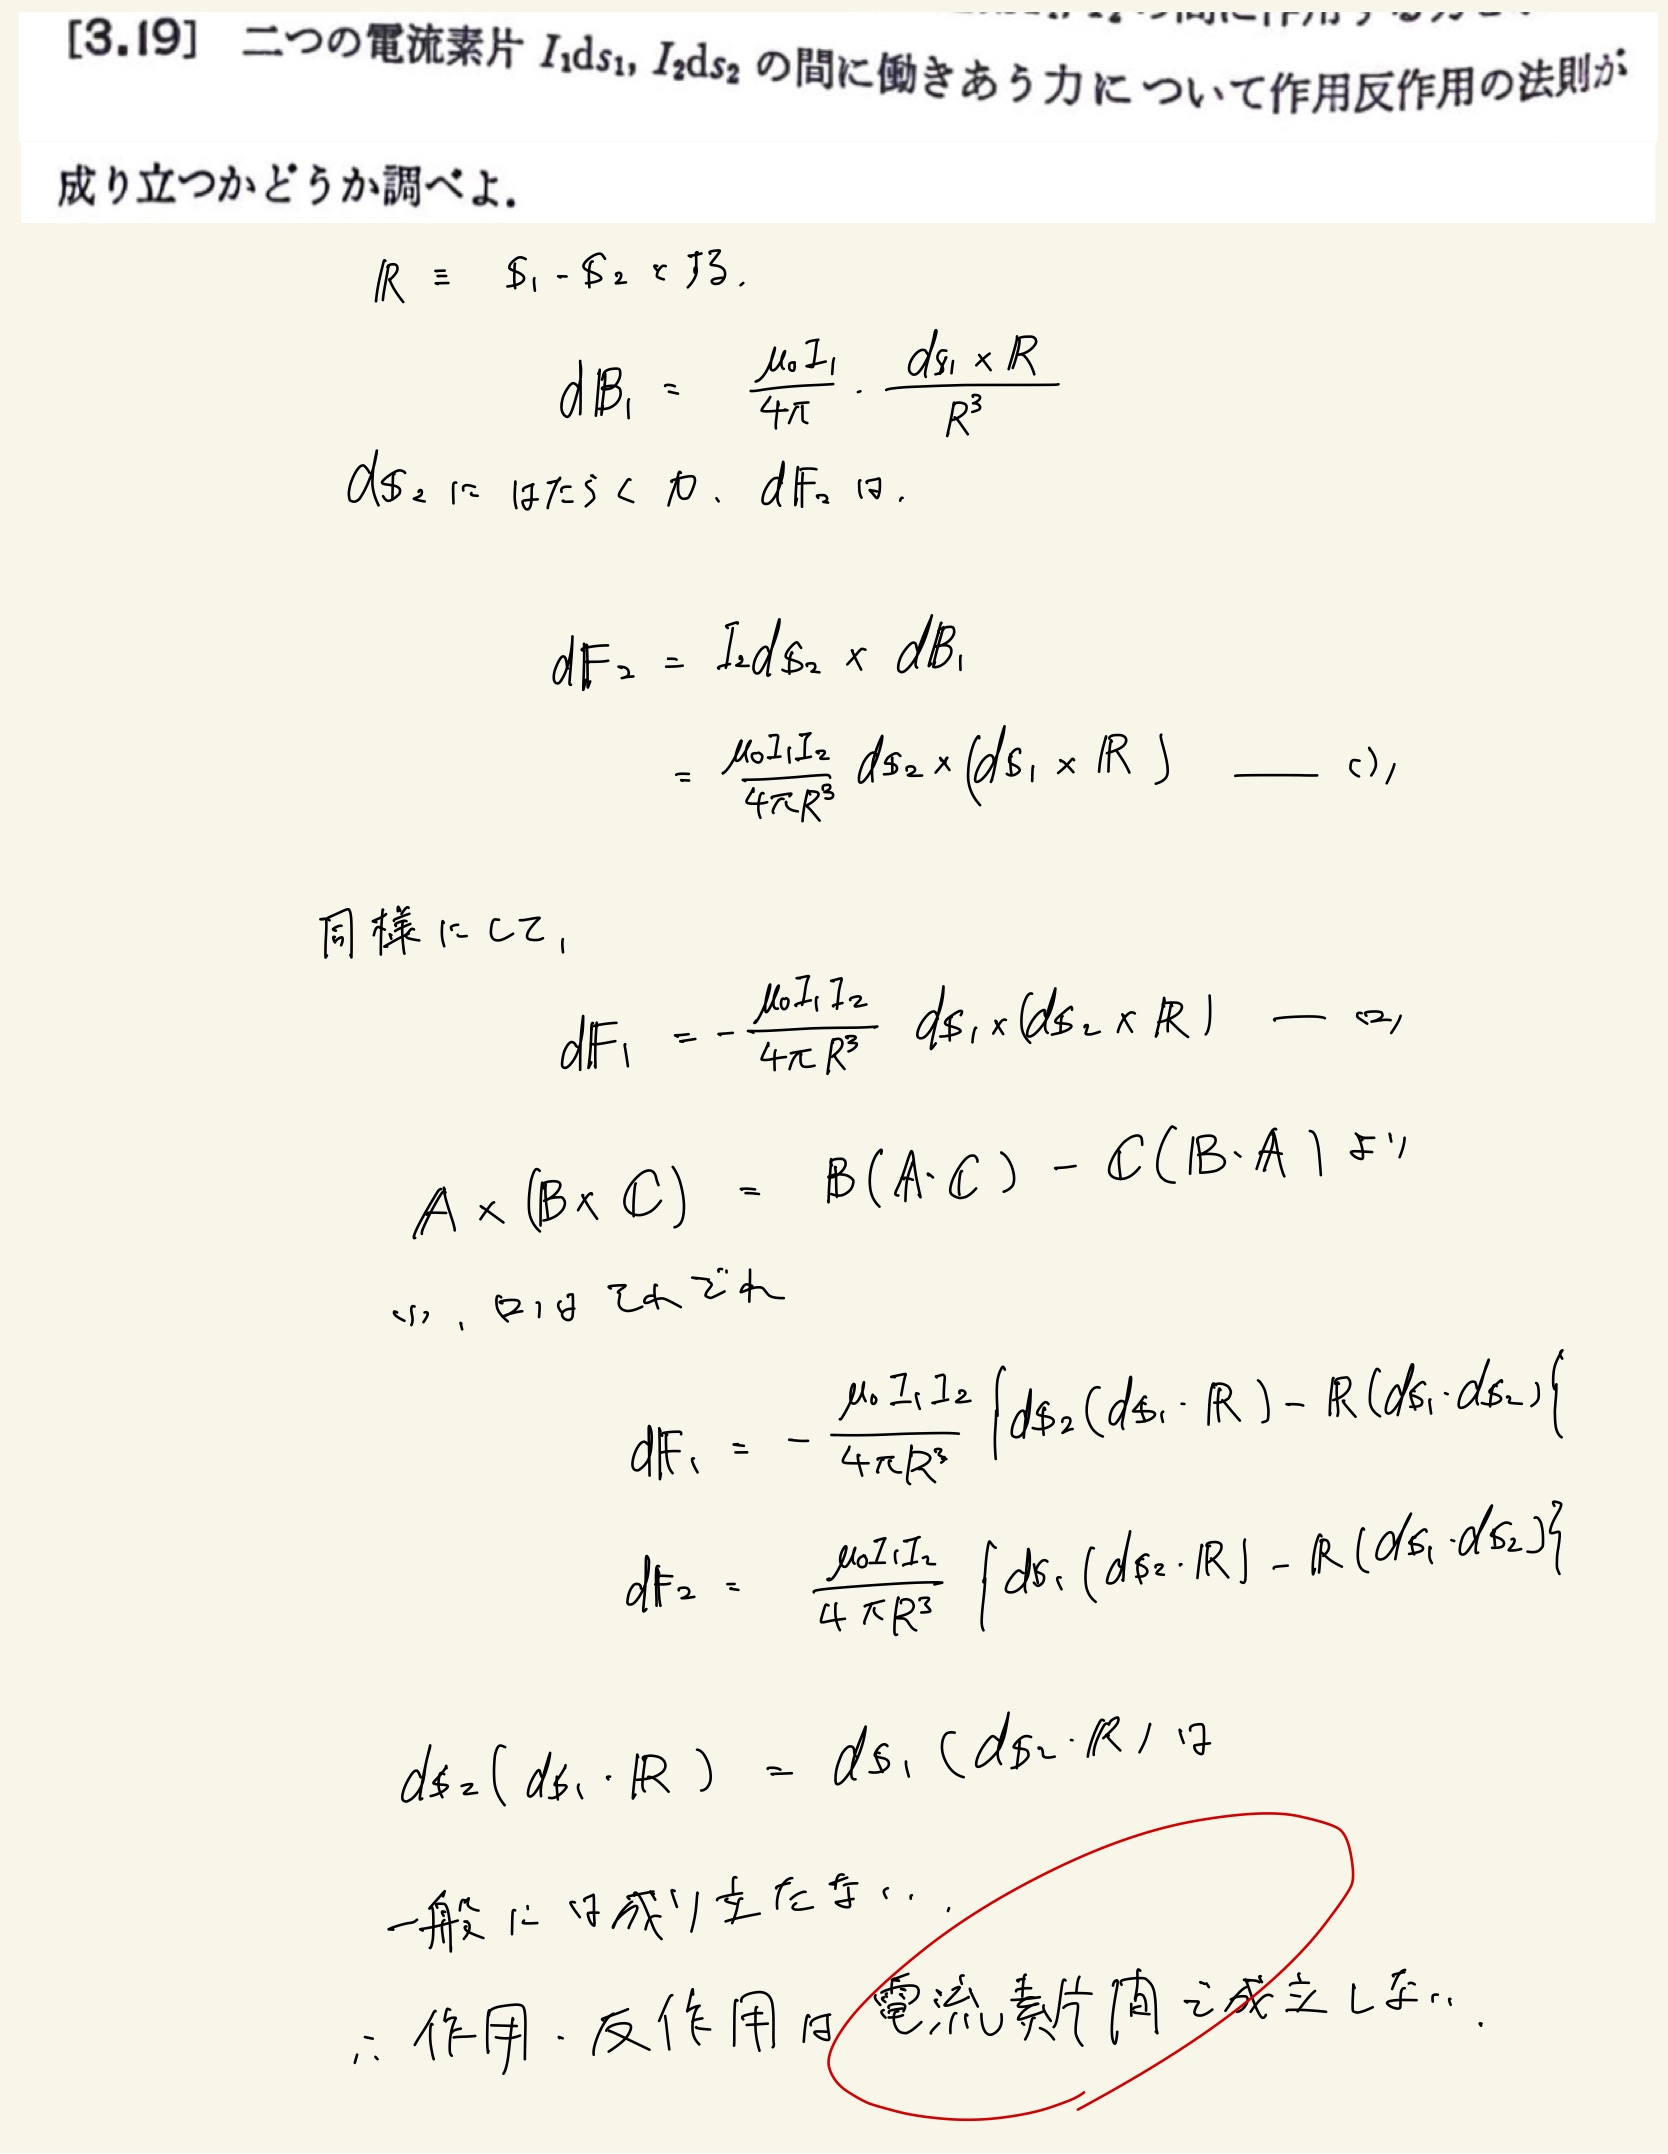 [3.19] 二つの電流素片 I₁ds₁, I₂ds₂ の間に働きあう力について作用反作用の法則が
成り立つかどうか調べよ.
ℝ ≡ $₁ - $₂ とする.
d𝔹₁ = μ₀I₁/4π · ds₁ × ℝ/R³
ds₂ に はたらく 力、dF₂ は.
dF₂ = I₂ds₂ × dB₁
= μ₀I₁I₂/4πR³ ds₂ × (ds₁ × ℝ) — (1)
同様にして,
dF₁ = - μ₀I₁I₂/4πR³ ds₁ × (ds₂ × ℝ) — (2)
A × (B × C) = B(A·C) - C(B·A) より
(1), (2)はそれぞれ
dF₁ = - μ₀I₁I₂/4πR³ {ds₂(ds₁·ℝ) - ℝ(ds₁·ds₂)}
dF₂ = μ₀I₁I₂/4πR³ {ds₁(ds₂·ℝ) - ℝ(ds₁·ds₂)}
ds₂(ds₁·ℝ) = ds₁(ds₂·ℝ) は
一般には成り立たない.
∴ 作用・反作用は電流素片間で成立しない.